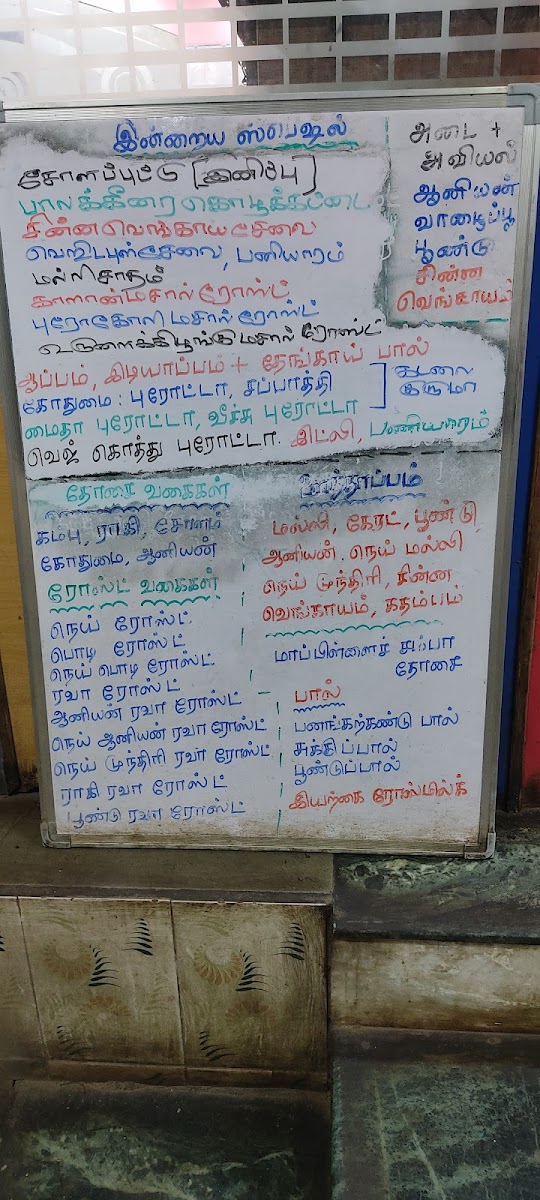 இன்றைய ஸ்பெஷல்
சோளப்புட்டு [இனிப்பு]
பாலக்கீரை கொழுக்கட்டை
சின்ன வெங்காய சேவை
வெஜிடபுள் சேவை, பனியாரம்
மல்லிசாதம்
காளான் மசால் ரோஸ்ட்
புரோகோலி மசால் ரோஸ்ட்
உருளைக்கிழங்கு மசால் ரோஸ்ட்
ஆப்பம், இடியாப்பம் + தேங்காய் பால்
கோதுமை : புரோட்டா, சப்பாத்தி
மைதா புரோட்டா, வீச்சு புரோட்டா
கடலை
குருமா
வெஜ் கொத்து புரோட்டா. இட்லி, பணியாரம்
அடை +
அவியல்
ஆனியன்
வாழைப்பூ
பூண்டு
சின்ன
வெங்காயம்
தோசை வகைகள்
கம்பு, ராகி, சோளம்
கோதுமை, ஆனியன்
ரோஸ்ட் வகைகள்
நெய் ரோஸ்ட்
பொடி ரோஸ்ட்
நெய் பொடி ரோஸ்ட்
ரவா ரோஸ்ட்
ஆனியன் ரவா ரோஸ்ட்
நெய் ஆனியன் ரவா ரோஸ்ட்
நெய் முந்திரி ரவா ரோஸ்ட்
ராகி ரவா ரோஸ்ட்
பூண்டு ரவா ரோஸ்ட்
ஊத்தாப்பம்
மல்லி, கேரட், பூண்டு
ஆனியன். நெய் மல்லி
நெய் முந்திரி, சின்ன
வெங்காயம், கதம்பம்
மாப்பிள்ளைச் சம்பா
தோசை
பால்
பனங்கற்கண்டு பால்
சுக்குப்பால்
பூண்டுப்பால்
இயற்கை ரோஸ்மில்க்